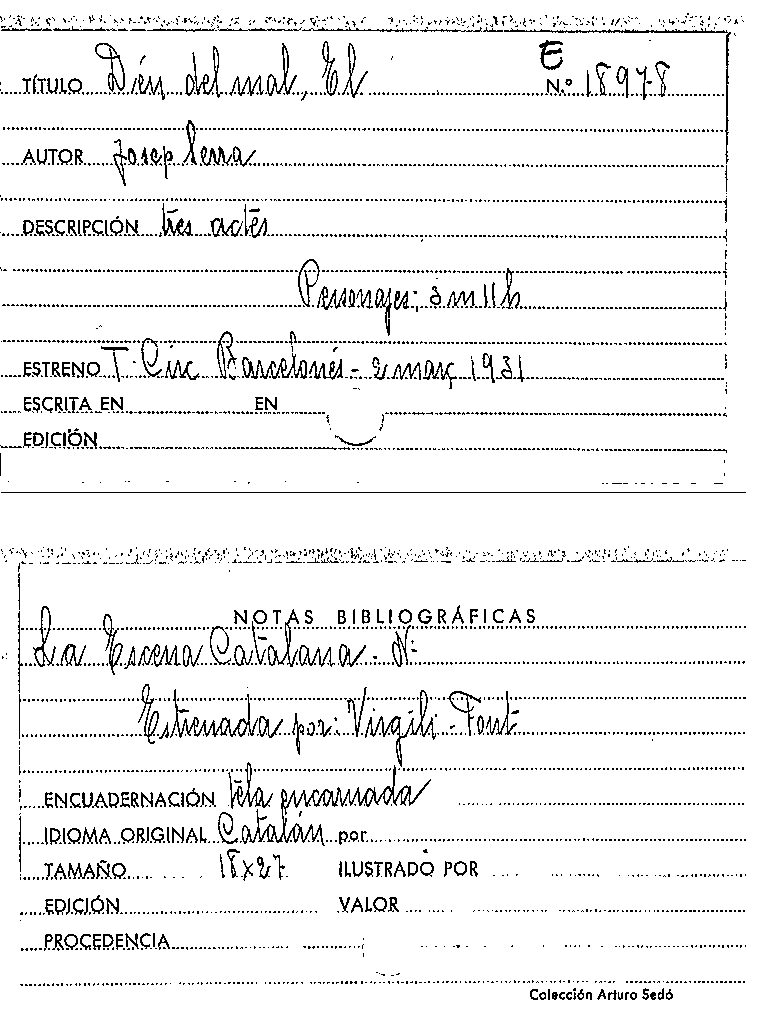 E
TÍTULO Déu del mal, El N.º 18978
AUTOR Josep Serra
DESCRIPCIÓN tres actes
Personajes; 3 m 11 h
ESTRENO T. Circ Barcelonés - 2 març 1931
ESCRITA EN EN
EDICIÓN
NOTAS BIBLIOGRÁFICAS
La Escena Catalana. Nº
Estrenada por: Virgili - Font
ENCUADERNACIÓN tela encarnada
IDIOMA ORIGINAL Catalán por
TAMAÑO 18x27 ILUSTRADO POR
EDICIÓN VALOR
PROCEDENCIA
Colección Arturo Sedó